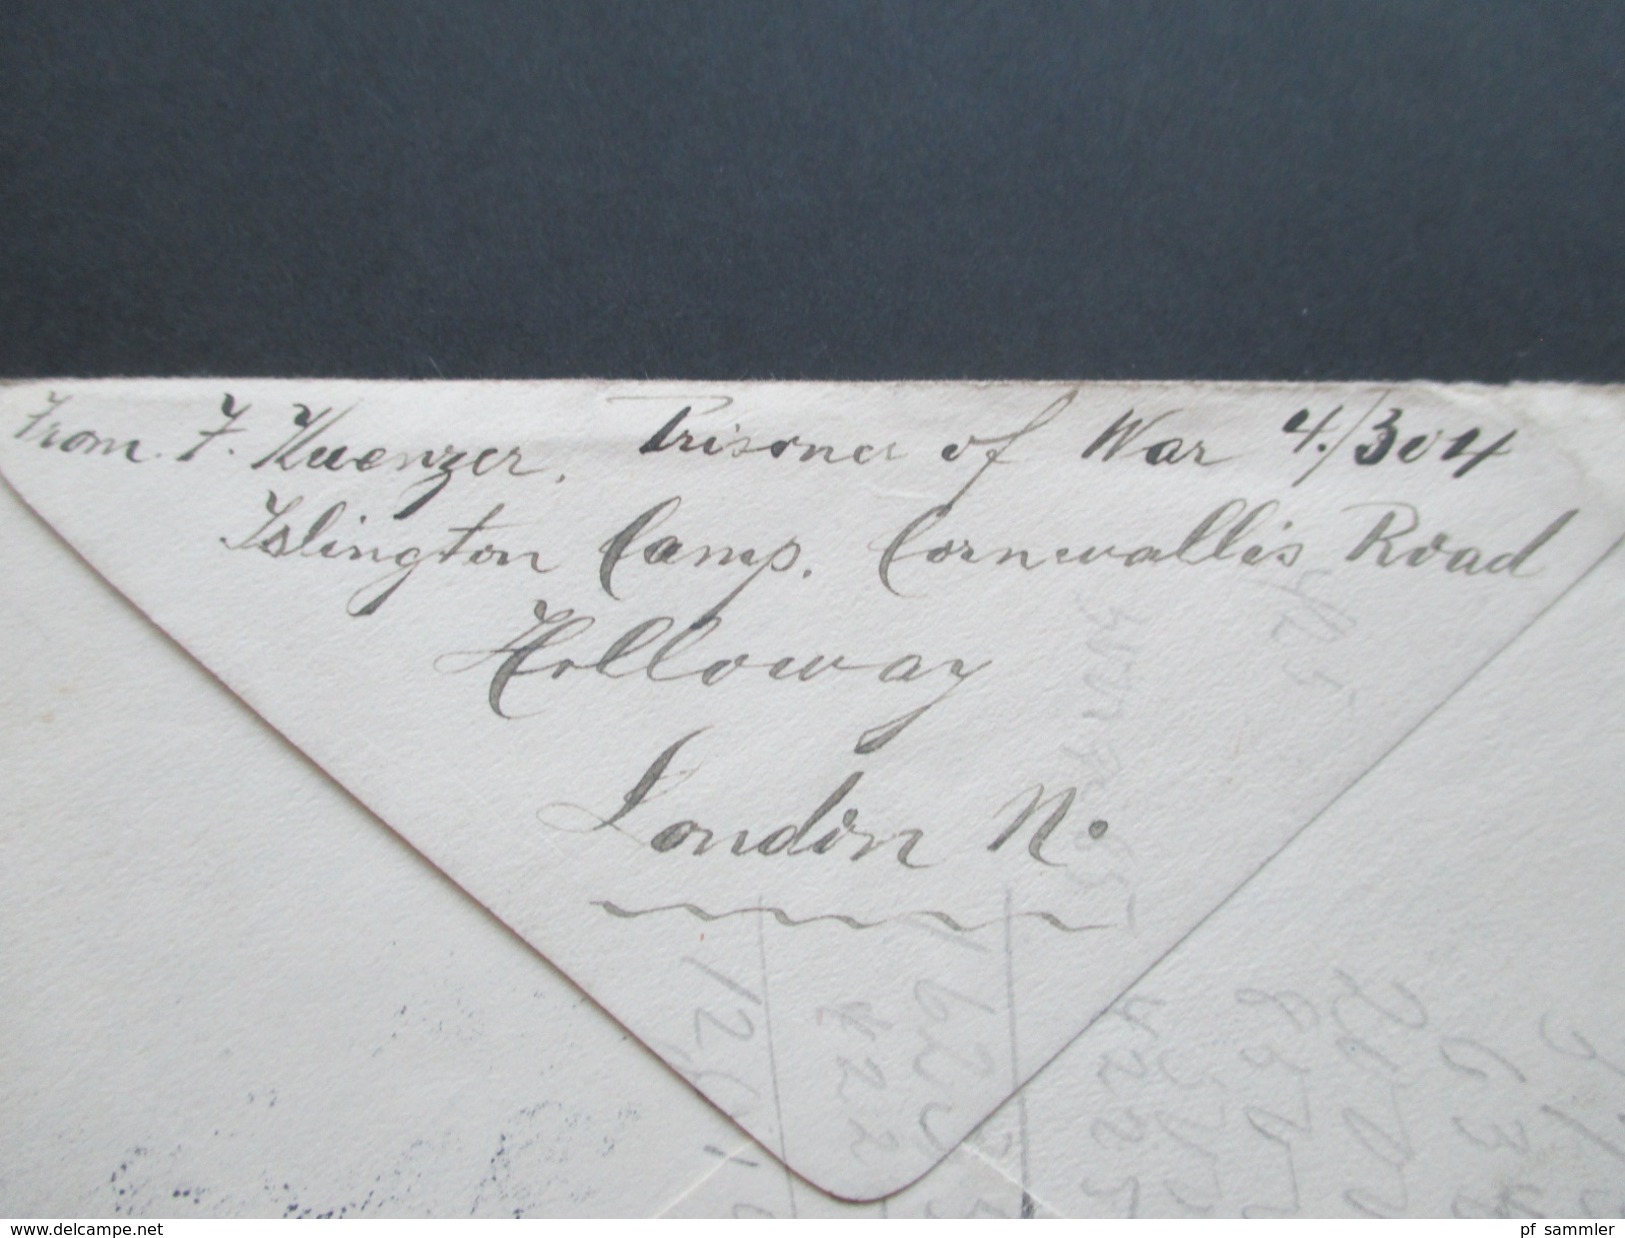 From F. Kuenzer. Prisoner of War 4./304
Islington Camp. Cornwallis Road
Holloway
London N.
www.delcampe.net
pf_sammler